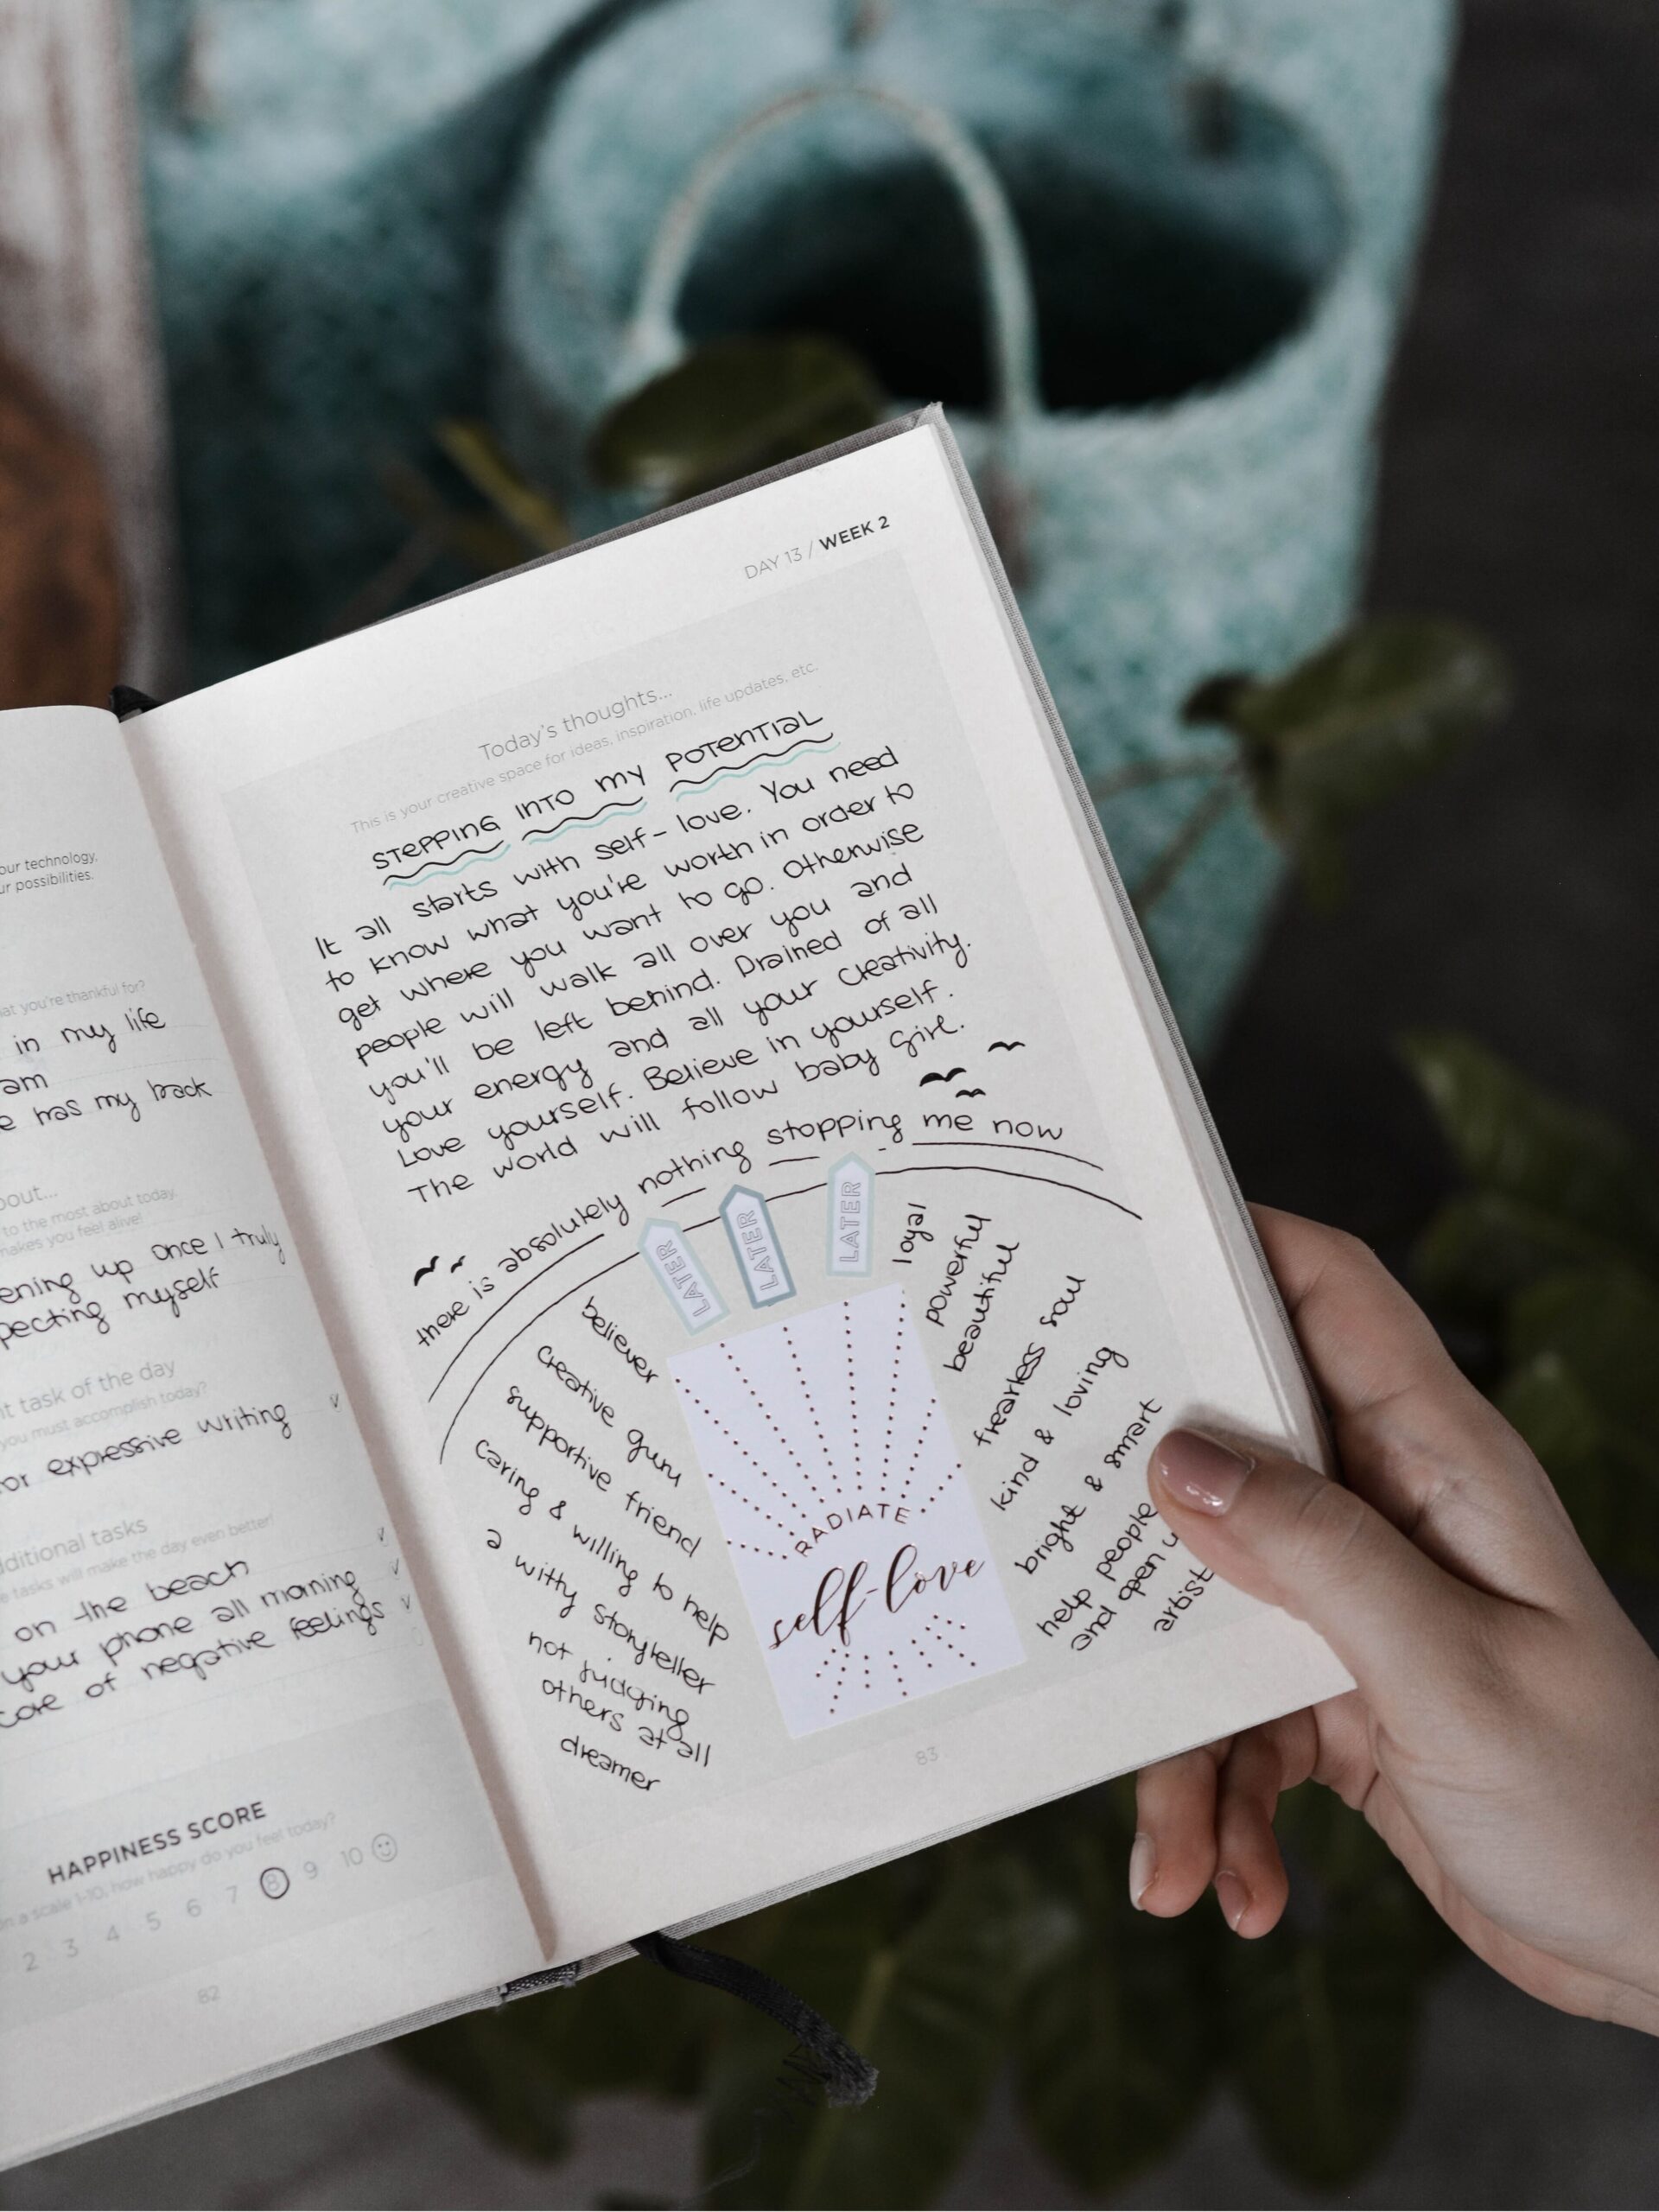 our technology.
ur possibilities.
at you're thankful for?
in my life
am
e has my back
bout...
to the most about today.
makes you feel alive!
ening up once I truly
pecting myself
nt task of the day
you must accomplish today?
or expressive writing
dditional tasks
e tasks will make the day even better!
on the beach
your phone all morning
core of negative feelings
HAPPINESS SCORE
on a scale 1-10, how happy do you feel today?
2 3 4 5 6 7 8 9 10
82
DAY 13 / WEEK 2
Today's thoughts...
This is your creative space for ideas, inspiration, life updates, etc.
STEPPING INTO MY POTENTIAL
It all starts with self-love. You need
to know what you're worth in order to
get where you want to go. Otherwise
people will walk all over you and
you'll be left behind. Drained of all
your energy and all your creativity.
Love yourself. Believe in yourself.
The world will follow baby girl.
there is absolutely nothing stopping me now
LATER
LATER
LATER
believer
creative guru
supportive friend
caring & willing to help
a witty storyteller
not judging
others at all
dreamer
RADIATE
self-love
loyal
powerful
beautiful
fearless soul
kind & loving
bright & smart
help people
and open u
artist
83